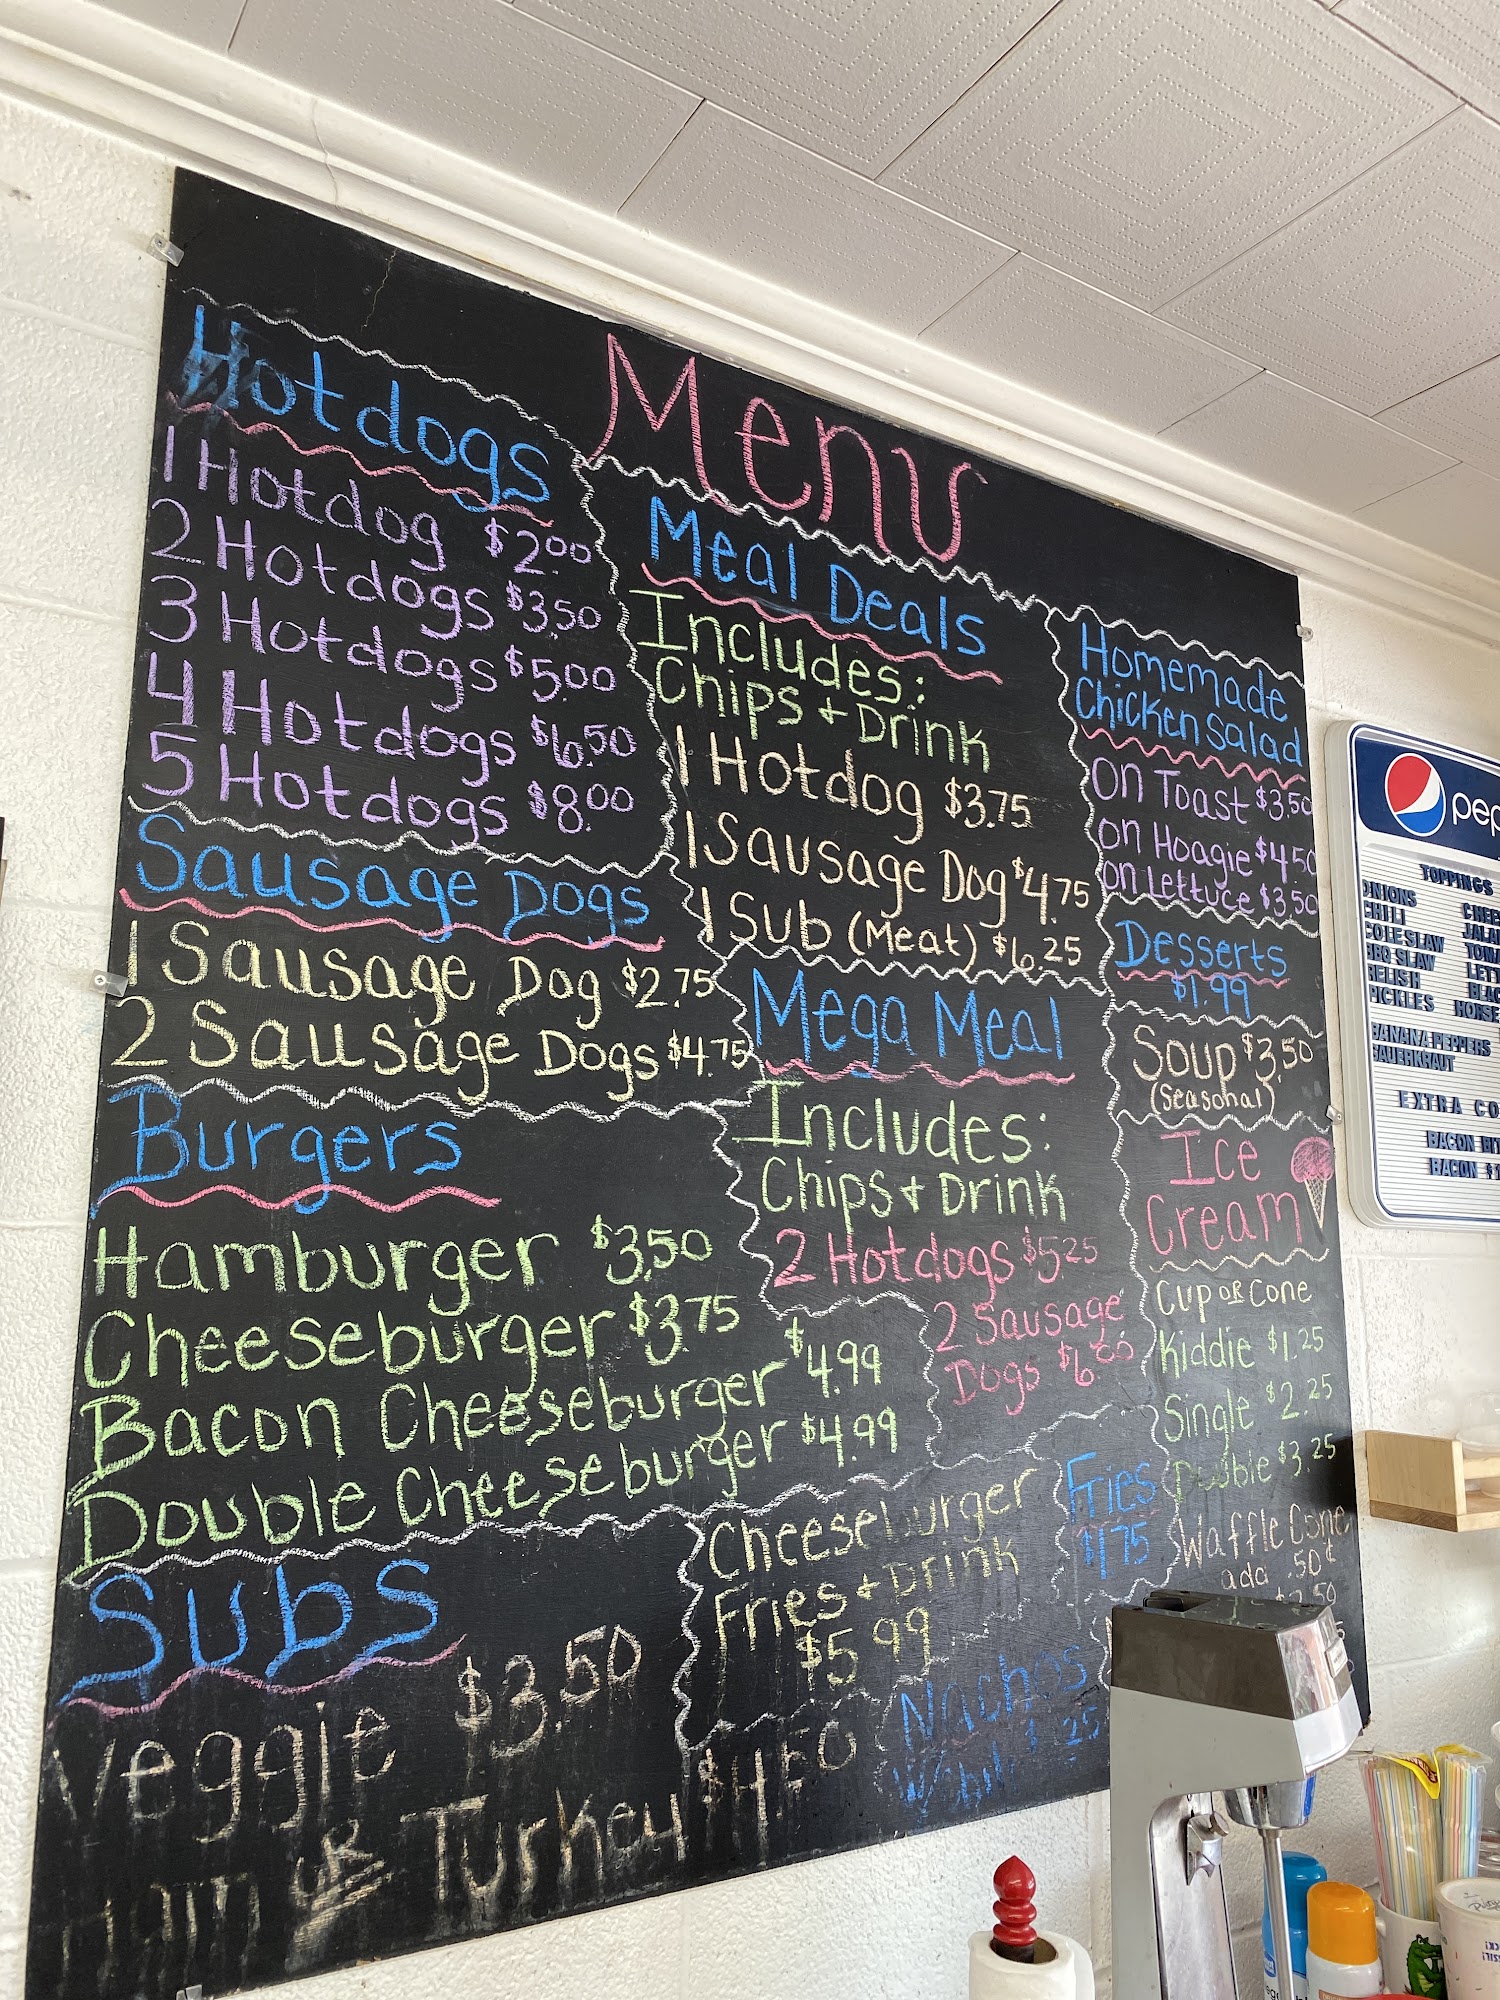 Menu
Hotdogs
1 Hotdog $2.00
2 Hotdogs $3.50
3 Hotdogs $5.00
4 Hotdogs $6.50
5 Hotdogs $8.00
Sausage Dogs
1 Sausage Dog $2.75
2 Sausage Dogs $4.75
Burgers
Hamburger $3.50
Cheeseburger $3.75
Bacon Cheeseburger $4.99
Double Cheeseburger $4.99
Subs
Veggie $3.50
Ham or Turkey $4.50
Meal Deals
Includes:
Chips + Drink
1 Hotdog $3.75
1 Sausage Dog $4.75
1 Sub (Meat) $6.25
Mega Meal
Includes:
Chips + Drink
2 Hotdogs $5.25
2 Sausage
Dogs
Cheeseburger
Fries + Drink
$5.99
Fries
$1.75
Nachos
Homemade
Chicken Salad
on Toast $3.50
on Hoagie $4.50
on Lettuce $3.50
Desserts
$1.99
Soup $3.50
(Seasonal)
Ice
Cream
Cup or Cone
Kiddie $1.25
Single $2.25
Double $3.25
Waffle Cone
add .50¢
TOPPINGS
ONIONS
CHILI
COLESLAW
BBQ SLAW
RELISH
PICKLES
BANANA PEPPERS
SAUERKRAUT
EXTRA
BACON
BACON